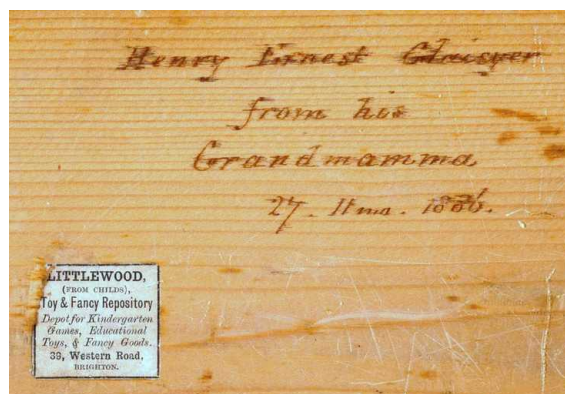 Henry Ernest Glaisyer
from his
Grandmamma
27 . 11 mo . 1886.
LITTLEWOOD,
(FROM CHILDS),
Toy & Fancy Repository
Depot for Kindergarten
Games, Educational
Toys, & Fancy Goods.
39, Western Road,
BRIGHTON.